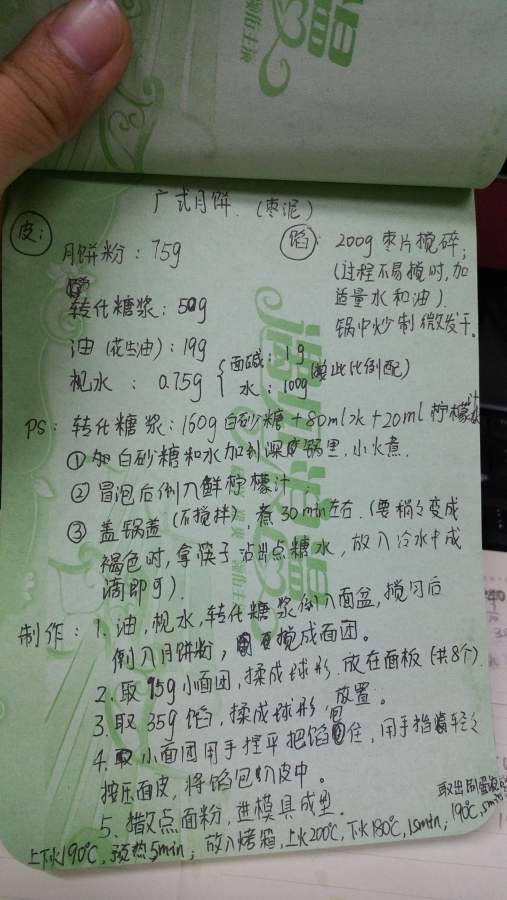 温
领衔主演
广式月饼.(枣泥)
皮:
馅:
月饼粉:75g
200g枣片搅碎;
(过程不易搅时,加
适量水和油).
锅中炒制微发干.
转化糖浆:50g
油(花生油):19g
枧水:0.75g
面碱:1g
水:100g
(此比例配)
PS:转化糖浆:160g白砂糖+80ml水+20ml柠檬汁
①白砂糖和水加到深底锅里,小火煮.
②冒泡后倒入鲜柠檬汁
③盖锅盖(不搅拌),煮30min左右.(要稍々变成
褐色时,拿筷子沾出点糖水,放入冷水中成
滴即可).
制作:1.油,枧水,转化糖浆倒入面盆,搅匀后
倒入月饼粉,搅成面团。
2.取15g小面团,揉成球形,放在面板(共8个)
3.取35g馅,揉成球形,放置。
4.小面团用手捏平把馅住,用手轻々
按压面皮,将馅包皮中。
5.撒点面粉,进模具成型.
上下火190℃,预热5min;放入烤箱,上火200℃,下火180℃,15min;
取出刷蛋液
190℃,5min